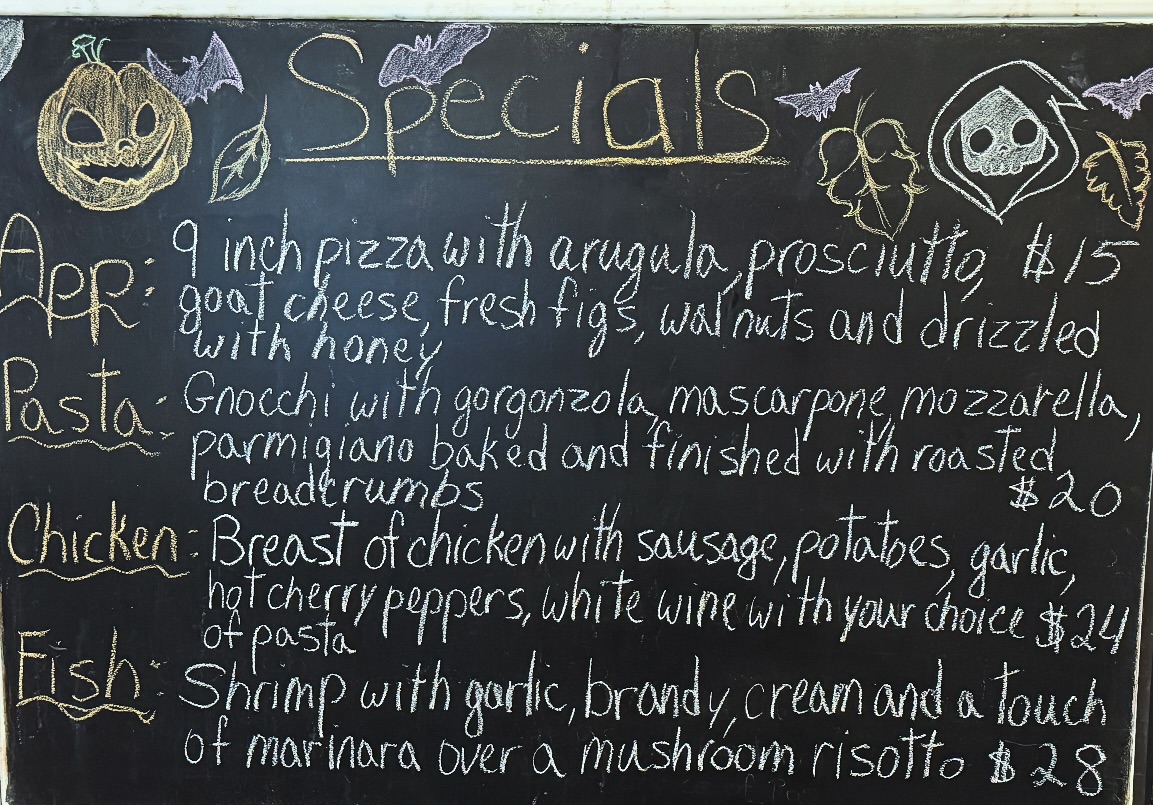 Specials
App: 9 inch pizza with arugula, prosciutto, $15
goat cheese, fresh figs, walnuts and drizzled
with honey
Pasta: Gnocchi with gorgonzola, mascarpone, mozzarella,
parmigiano baked and finished with roasted
breadcrumbs $20
Chicken: Breast of chicken with sausage, potatoes, garlic,
hot cherry peppers, white wine with your choice $24
of pasta
Fish: Shrimp with garlic, brandy, cream and a touch
of marinara over a mushroom risotto $28